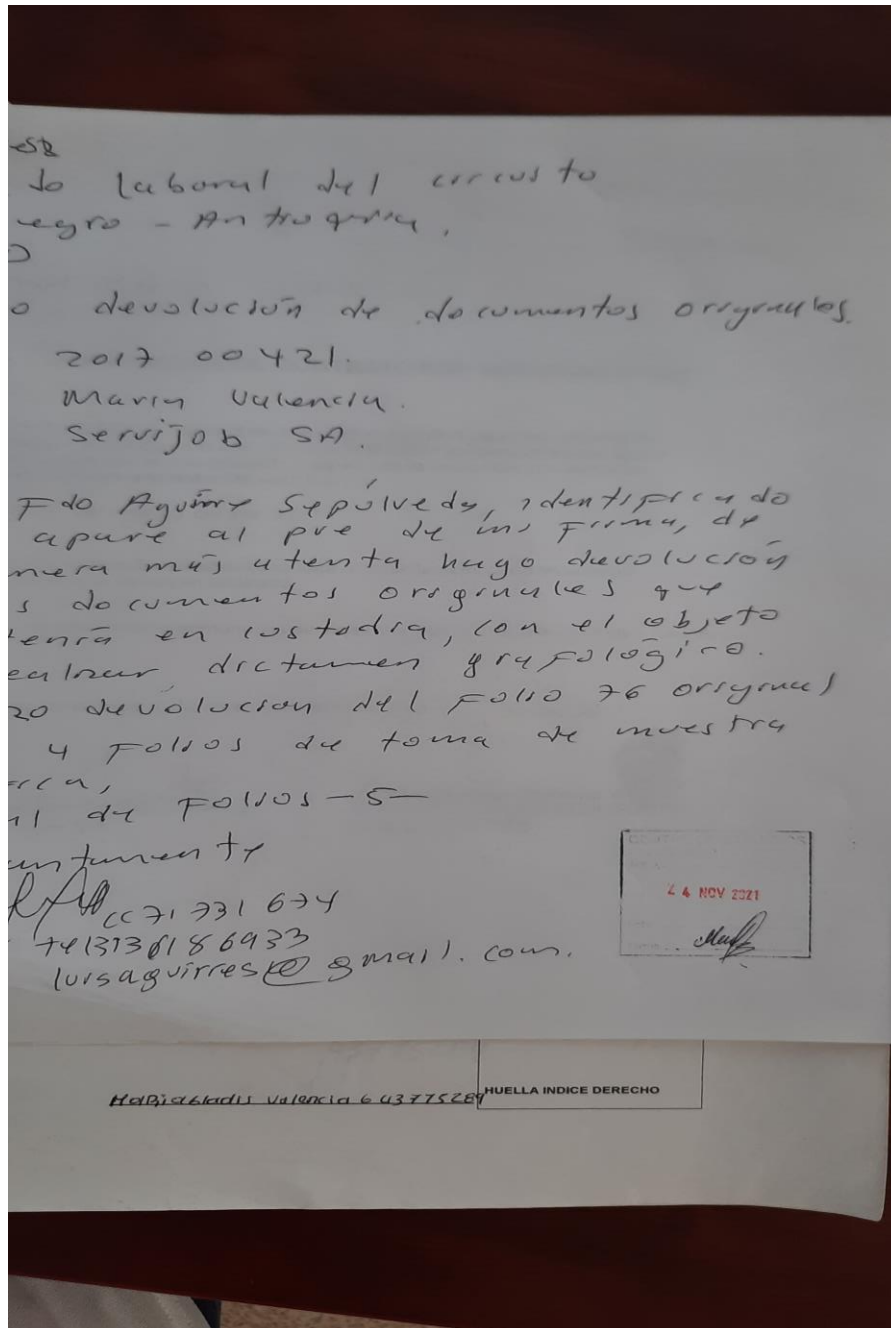 do laboral del circuito
egro - Antioquia.
o devolución de documentos originales.
2017 00421.
Maria Valencia.
Servijob SA.
Fdo Aguirre Sepúlveda, identificado
al pie de mi firma, de
nera más atenta hago devolución
s documentos originales que
tenía en custodia, con el objeto
ealizar dictamen grafológico.
go devolucion del Folio 76 original
4 Folios de toma de muestra
rica,
al de Folios -5-
entamente
cc 71 731 674
luisaguirres@gmail.com.
24 NOV 2021
Valencia 6 43775289
HUELLA INDICE DERECHO